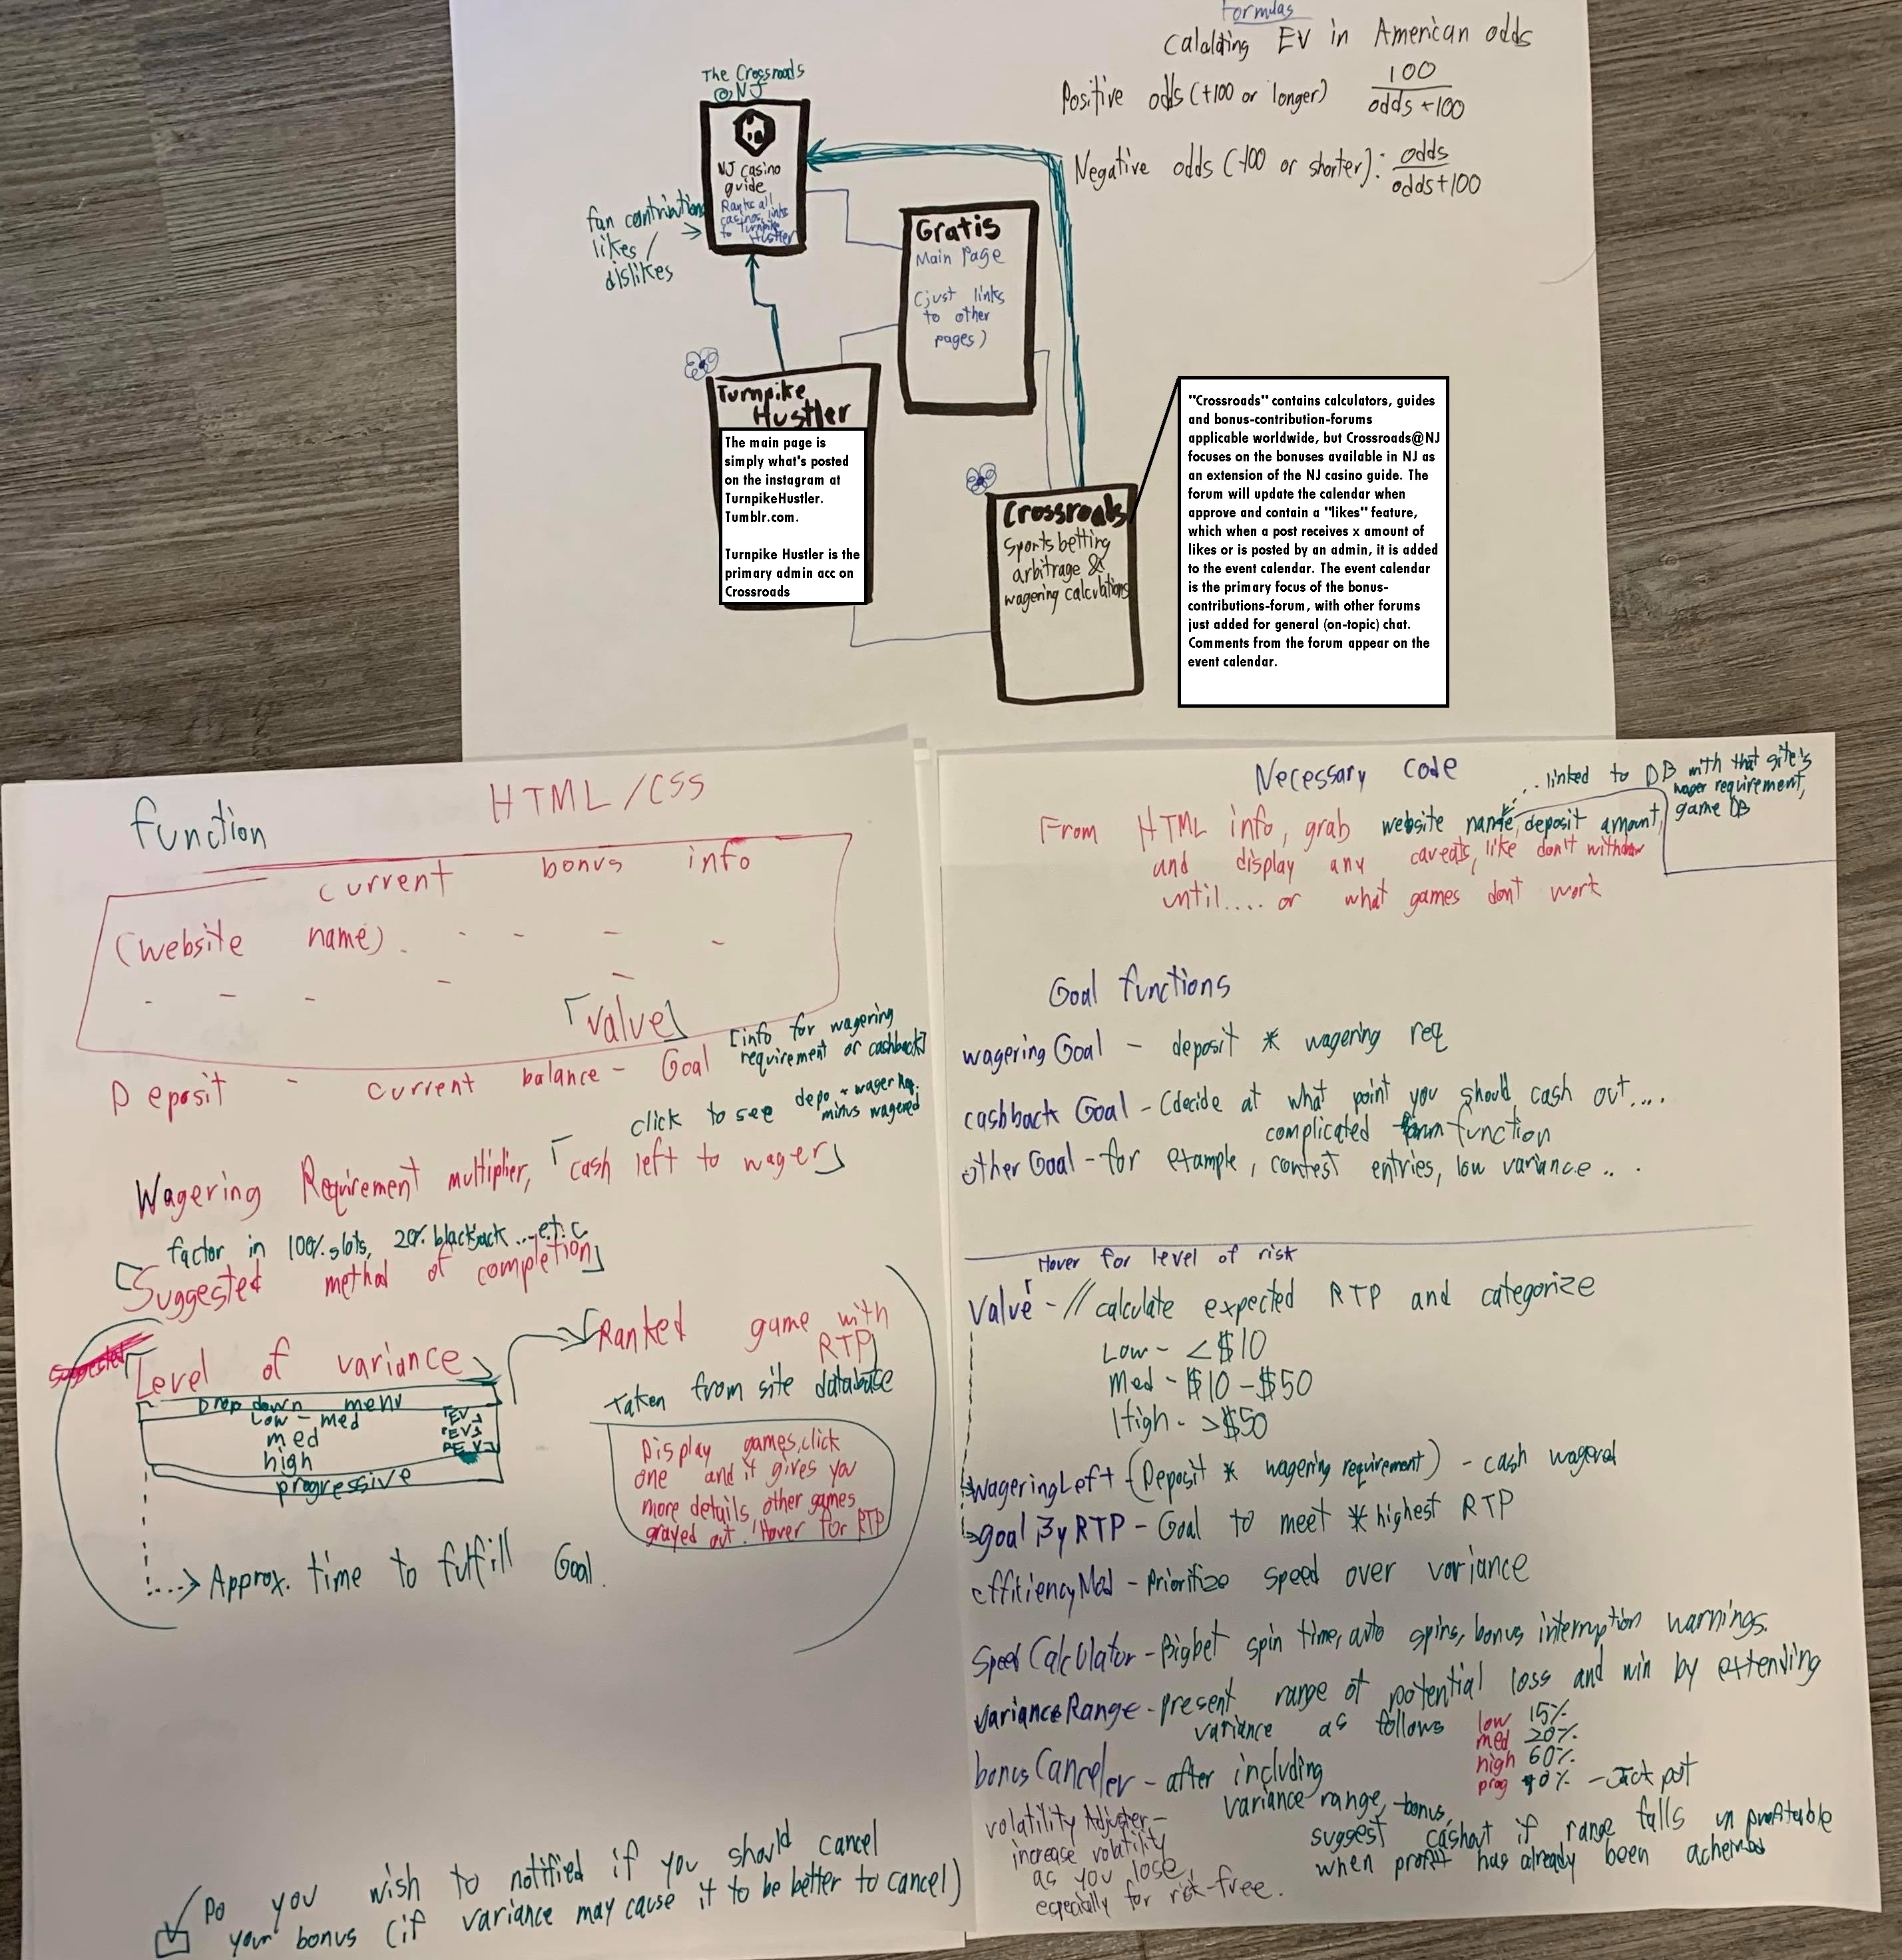 Formulas
Calalating EV in American odds
Positive odds (+100 or longer) 100
odds +100
Negative odds (-100 or shorter): odds
odds+100
The Crossroads
@NJ
NJ casino
guide
Ranks all
casinos, links
to Turnpike
Hustler
fan contribution
likes /
dislikes
Gratis
Main Page
(just links
to other
pages)
Turnpike
Hustler
The main page is
simply what's posted
on the instagram at
TurnpikeHustler.
Tumblr.com.
Turnpike Hustler is the
primary admin acc on
Crossroads
Crossroads
Sports betting
arbitrage &
wagering calculations
"Crossroads" contains calculators, guides
and bonus-contribution-forums
applicable worldwide, but Crossroads@NJ
focuses on the bonuses available in NJ as
an extension of the NJ casino guide. The
forum will update the calendar when
approve and contain a "likes" feature,
which when a post receives x amount of
likes or is posted by an admin, it is added
to the event calendar. The event calendar
is the primary focus of the bonus-
contributions-forum, with other forums
just added for general (on-topic) chat.
Comments from the forum appear on the
event calendar.
function HTML/CSS
current bonus info
(website name). - - - -
- - - - -
[value]
Deposit - current balance - Goal [info for wagering
requirement or cashback]
click to see depo * wager Req.
minus wagered
Wagering Requirement multiplier, [cash left to wager]
factor in 100% slots, 20% blackjack ...e.t.c.
[Suggested method of completion]
Suggested
[Level of variance]
Drop down menu
low - med [EV]
med [EV]
high [EV]
progressive
[Ranked game with
RTP]
Taken from site database
Display games, click
one and it gives you
more details, other games
grayed out. Hover for RTP
...> Approx. time to fulfill Goal.
Do you wish to notified if you should cancel
your bonus (if variance may cause it to be better to cancel)
Necessary code
... linked to DB with that site's
wager requirement,
game DB
From HTML info, grab website name, deposit amount,
and display any caveats, like don't withdraw
until.... or what games dont work
Goal functions
wageringGoal - deposit * wagering req
cashback Goal - (decide at what point you should cash out....
complicated function
other Goal - for example, contest entries, low variance...
Hover for level of risk
Value - // calculate expected RTP and categorize
Low - <$10
Med - $10 - $50
High - >$50
wageringLeft - (Deposit * wagering requirement) - cash wagered
goal By RTP - Goal to meet * highest RTP
efficiencyMod - Prioritize speed over variance
Speed Calculator - Bigbet spin time, auto spins, bonus interruption warnings.
varianceRange - present range of potential loss and win by extending
variance as follows low 15%
med 20%
high 60%
prog 90% - Jackpot
bonus Canceler - after including
variance range, bonus,
suggest cashout if range falls unprofitable
when profit has already been acheived
volatility Adjuster -
increase volatility
as you lose,
especially for risk-free.